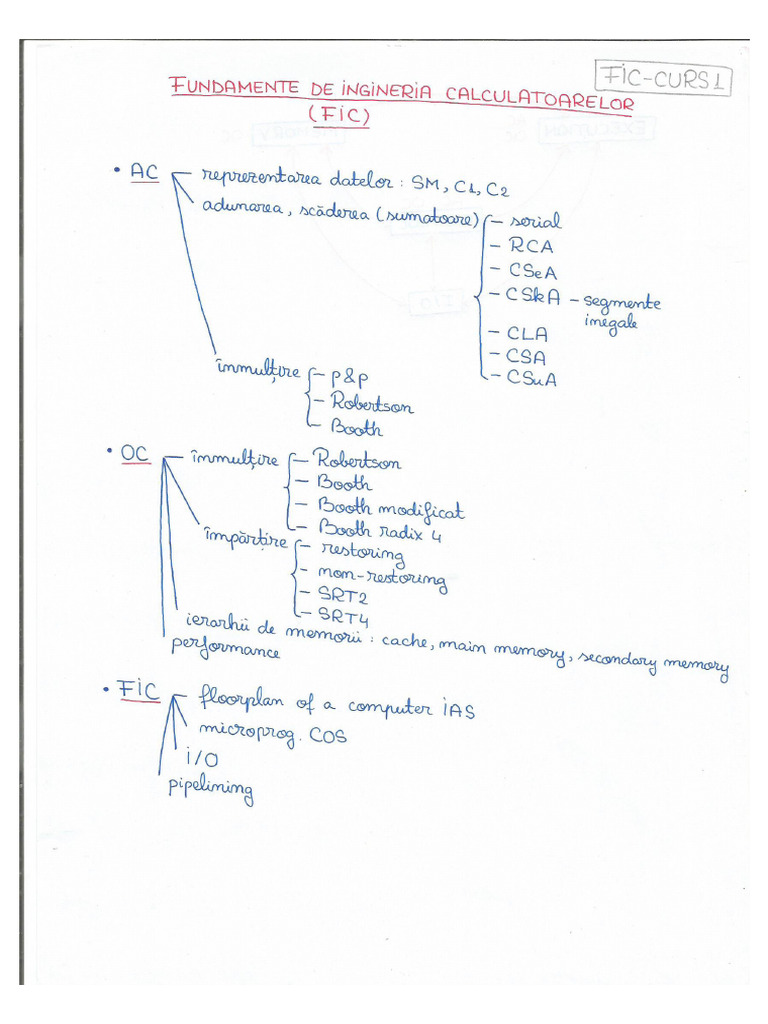 FIC-CURS1
FUNDAMENTE DE INGINERIA CALCULATOARELOR
(FIC)
• AC – reprezentarea datelor: SM, C1, C2
adunarea, scăderea (sumatoare) – serial
– RCA
– CSeA
– CSkA – segmente
inegale
– CLA
– CSA
– CSuA
înmulțire – p&p
– Robertson
– Booth
• OC – înmulțire – Robertson
– Booth
– Booth modificat
– Booth radix 4
împărțire – restoring
– non-restoring
– SRT2
– SRT4
ierarhii de memorii: cache, main memory, secondary memory
performance
• FIC – floorplan of a computer IAS
microprog. COS
I/O
pipelining